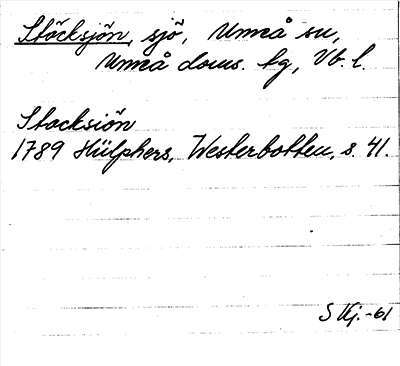 Stöcksjön, sjö, Umeå sn,
Umeå doms. hg, Vb. l.
Stocksiön
1789 Hülphers, Westerbotten, s. 41.
S Kj.-61